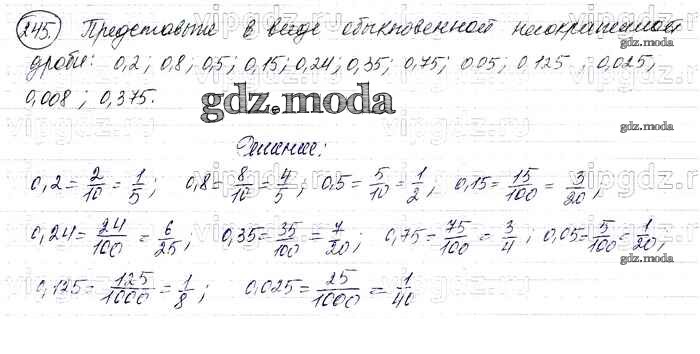 245. Представьте в виде обыкновенной несократимой
дроби: 0,2; 0,8; 0,5; 0,15; 0,24; 0,35; 0,75; 0,05; 0,125; 0,025;
0,008; 0,375.
gdz.moda
Решение:
0,2 = 2/10 = 1/5; 0,8 = 8/10 = 4/5; 0,5 = 5/10 = 1/2; 0,15 = 15/100 = 3/20;
0,24 = 24/100 = 6/25; 0,35 = 35/100 = 7/20; 0,75 = 75/100 = 3/4; 0,05 = 5/100 = 1/20;
0,125 = 125/1000 = 1/8; 0,025 = 25/1000 = 1/40
gdz.moda
gdz.moda
gdz.moda
gdz.moda
vipgdz.ru